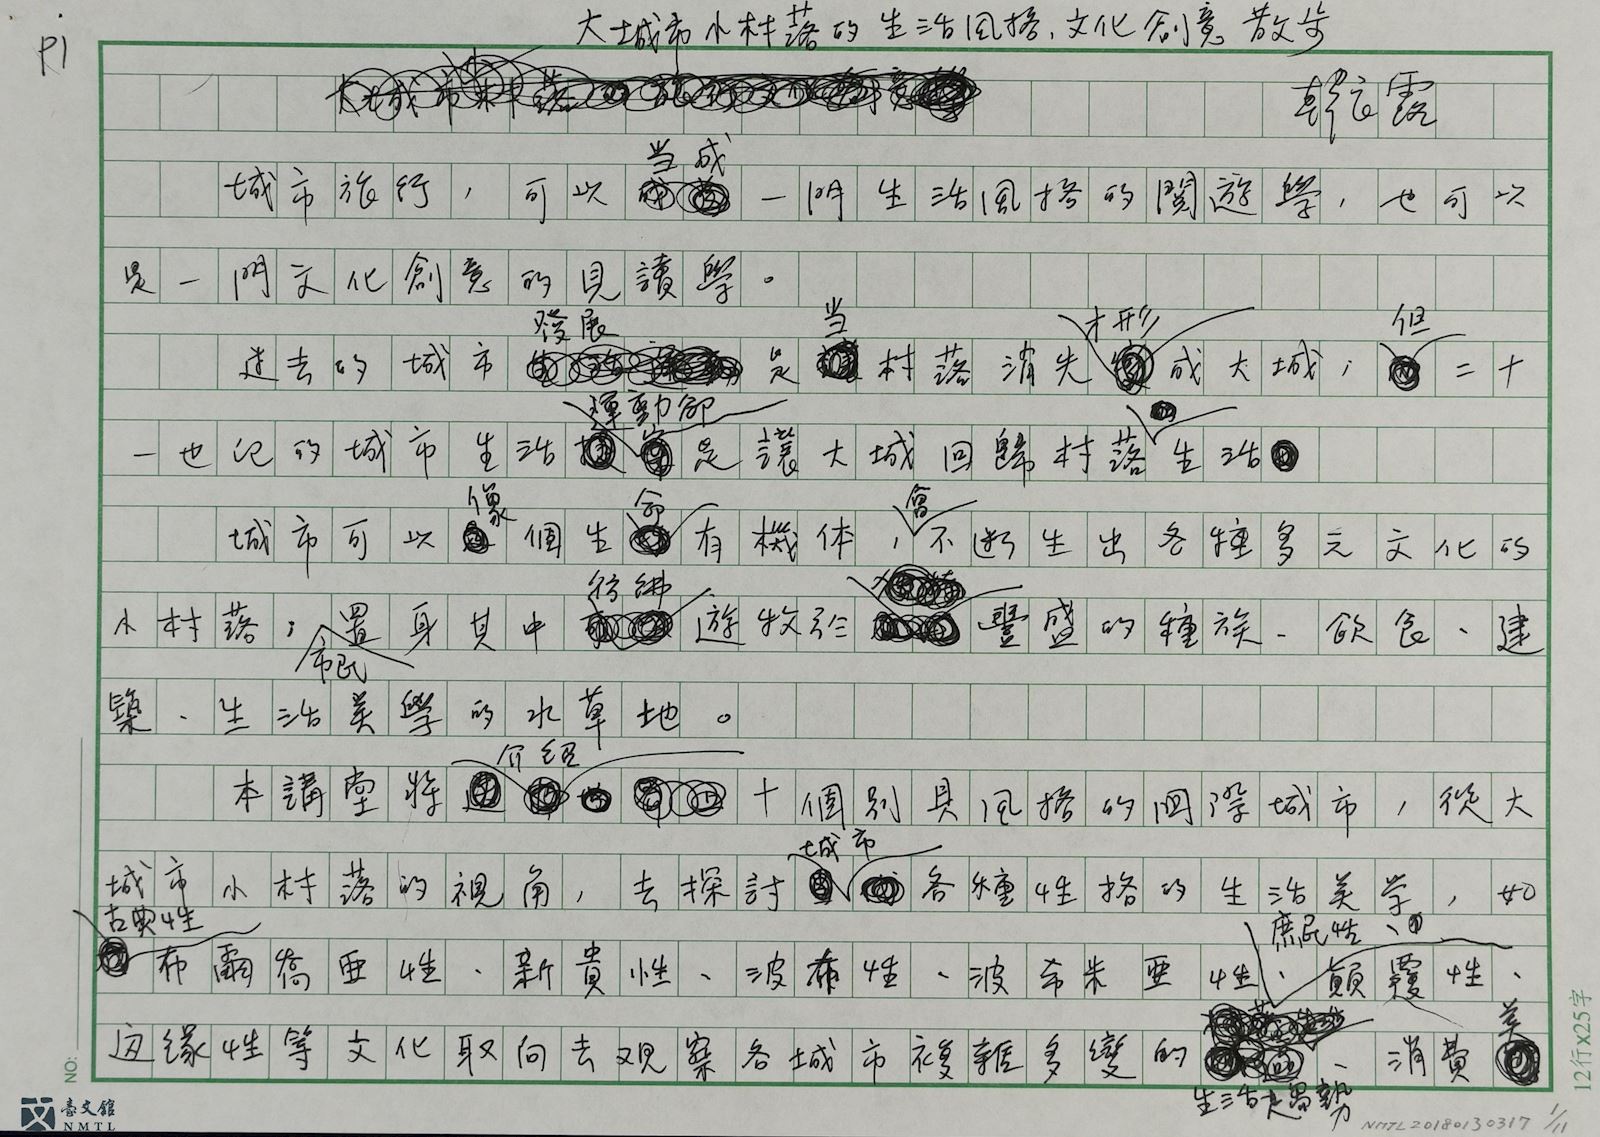 P1
大城市小村落的生活風格、文化創意散步
韓良露
城市旅行，可以当成一門生活風格的閱遊學，也可以
是一門文化創意的見讀學。
過去的城市發展是当村落消失才形成大城；但二十
一世纪的城市生活運動卻是讓大城回歸村落生活
城市可以像個生命有機体，會不断生出各種多元文化的
小村落；市民置身其中彷彿遊牧於豐盛的種族、飲食、建
築、生活美學的水草地。
本講堂將介紹十個別具風格的國際城市，從大
城市小村落的視角，去探討城市各種性格的生活美学，如
古典性布爾喬亞性、新貴性、波布性、波希米亞性、庶民性、顛覆性、
边緣性等文化取向去观察各城市複雜多變的生活趨勢、消費美
12行X25字
NO:
臺文館
NMTL
NMTL20180130317 1/11